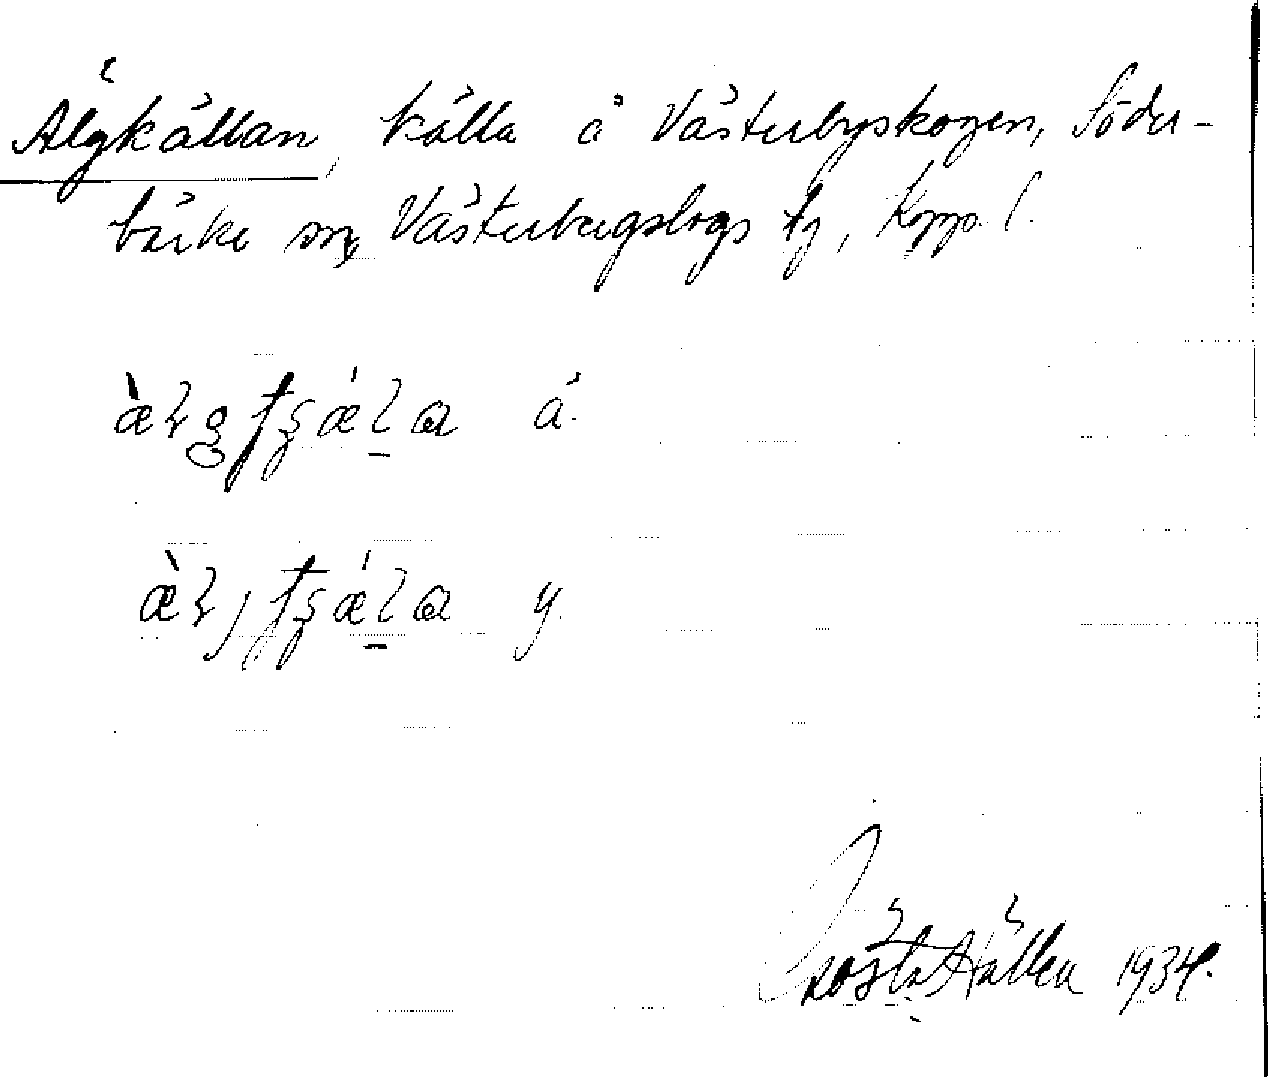 Älgkällan, källa å Västerbyskogen, Söder-
bärke sn, Västerbergslags tg, Kopp. l.
å.
y.
Gösta Hällen 1934.